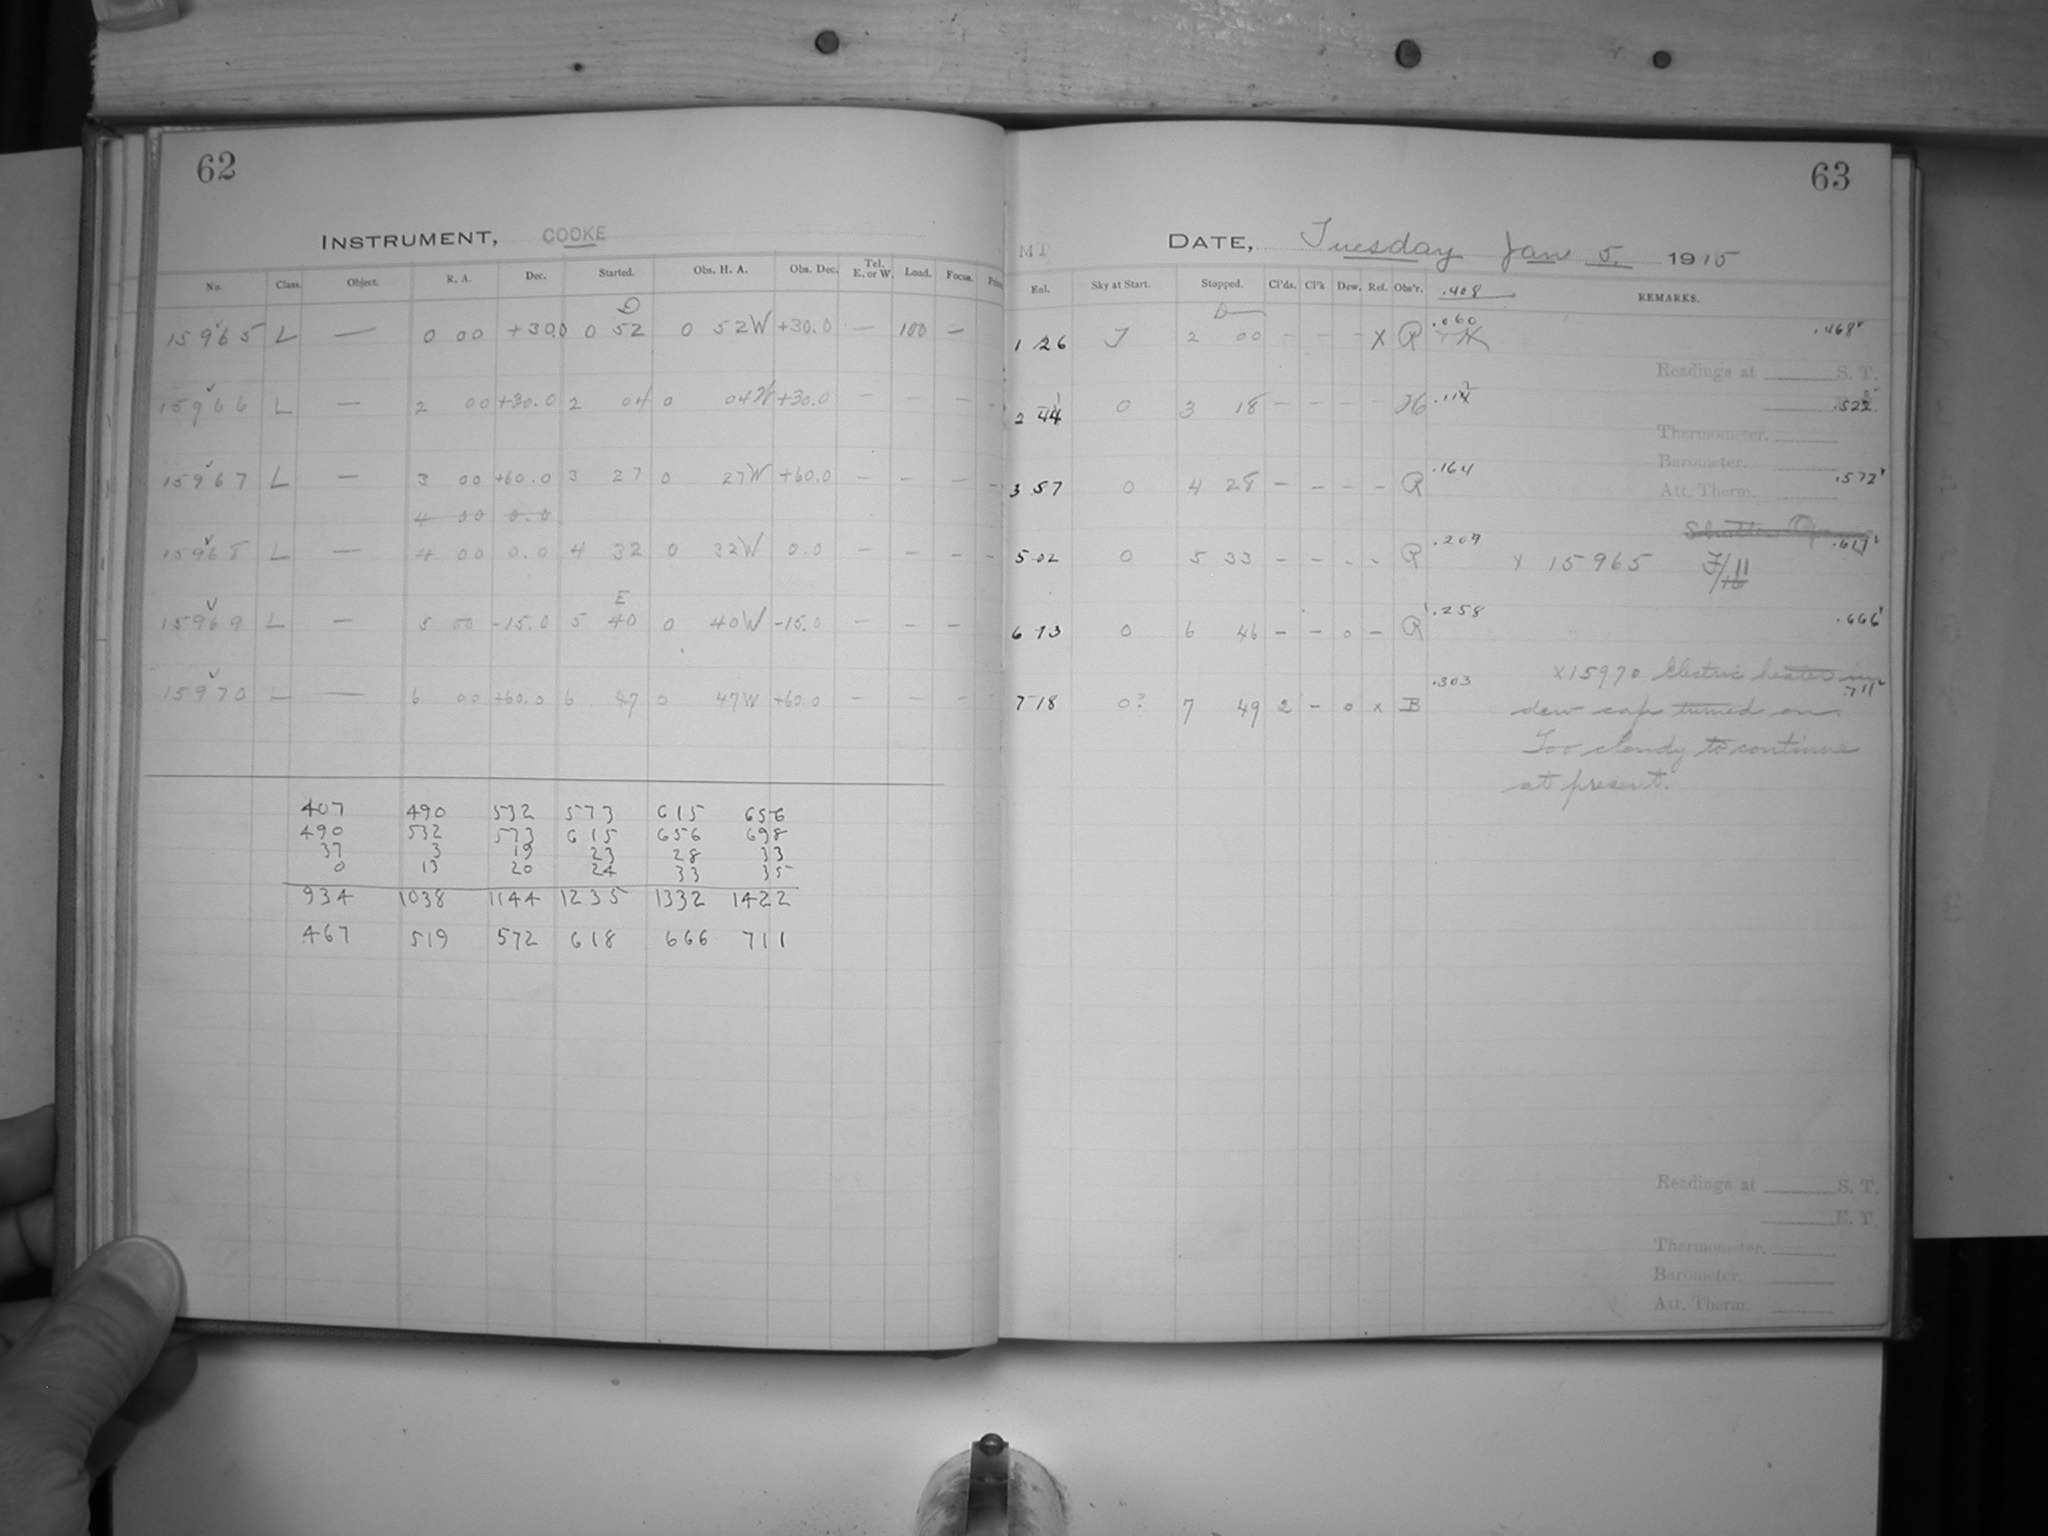 62
INSTRUMENT, COOKE
No. Class. Object. R. A. Dec. Started. Obs. H. A. Obs. Dec. Tel. E. or W. Load. Focus.
D
15965 L — 0 00 +30.0 0 52 0 52W +30.0 — 100 —
15966 L — 2 00 +30.0 2 04 0 04W +30.0 — — — —
15967 L — 3 00 +60.0 3 27 0 27W +60.0 — — — —
4 00 0.0
15968 L — 4 00 0.0 4 32 0 32W 0.0 — — — —
E
15969 L — 5 00 -15.0 5 40 0 40W -15.0 — — — —
15970 L — 6 00 +60.0 6 47 0 47W +60.0 — — — —
407 490 532 573 615 656
490 532 573 615 656 698
37 3 19 23 28 33
0 13 20 24 33 35
934 1038 1144 1235 1332 1422
467 519 572 618 666 711
63
DATE, Tuesday Jan 5. 1915
Enl. Sky at Start. Stopped. Cl'ds. Cl'k Dew. Ref. Obs'r. .408 REMARKS.
D
1 26 J 2 00 - - - X R .060 .468
Readings at S. T.
2 44 0 3 18 - - - - H .522
Thermometer.
Barometer.
3 57 0 4 28 - - - - R .164 .572
Att. Therm.
Shutter
5 02 0 5 33 - - - - R .209 x 15965 F/11 .617
6 13 0 6 46 - - 0 - R .258 .666
x15970 Electric heater in
7 18 0? 7 49 2 - 0 x B .303 .711
dew cap turned on.
Too cloudy to continue
at present.
Readings at S. T.
E. T.
Thermometer.
Barometer.
Att. Therm.